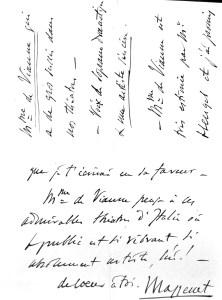 Mme de Vianne qui
a de gros succès dans
ses théâtres —
— Voix de soprano dramatique
& une artiste
— Mme de Vianne est
très estimée par Mr
Heugel et j'ai promis
que je t'écrirai en sa faveur —
Mme de Vianne pense à ces
admirables théâtres d'Italie où
le public est si vibrant si
absolument artiste, lui! —
de coeur à toi. Massenet